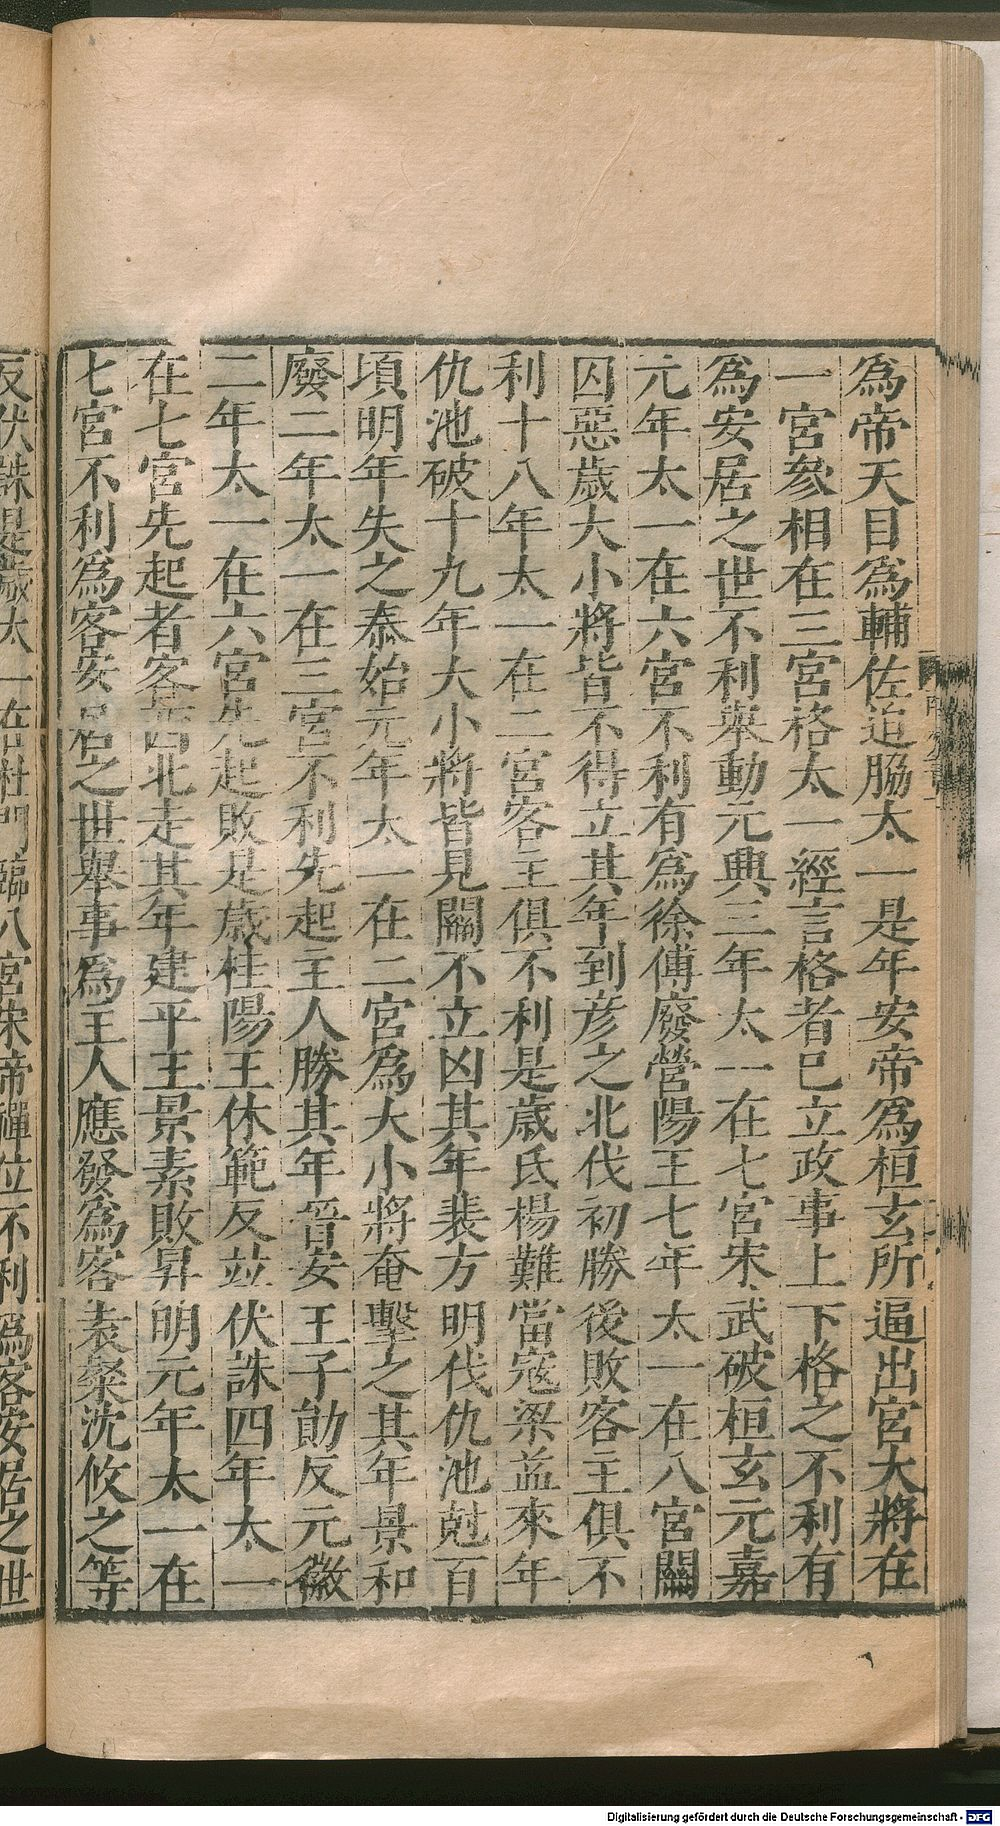 爲帝天目爲輔佐迫脇太一是年安帝爲桓玄所逼出宮大將在
一宮參相在三宮格太一經言格者巳立政事上下格之不利有
爲安居之世不利舉動元興三年太一在七宮宋武破桓玄元嘉
元年太一在六宮不利有爲徐傅廢營陽王七年太一在八宮關
囚惡歲大小將皆不得立其年到彥之北伐初勝後敗客主俱不
利十八年太一在二宮客主俱不利是歲氐楊難當寇梁益來年
仇池破十九年大小將皆見關不立凶其年裴方明伐仇池尅百
頃明年失之泰始元年太一在二宮爲大小將奄擊之其年景和
廢二年太一在三宮不利先起主人勝其年晉安王子勛反元徽
二年太一在六宮先起敗是歲桂陽王休範反竝伏誅四年太一
在七宮先起者客西北走其年建平王景素敗昇明元年太一在
七宮不利爲客安居之世舉事爲主人應發爲客袁粲沈攸之等
反伏誅是歲太一在杜門臨八宮宋帝禪位不利爲客安居之世
Digitalisierung gefördert durch die Deutsche Forschungsgemeinschaft - DFG